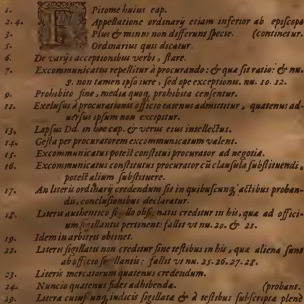 1. EPitome huius cap.
2.4. Appellatione ordinarij etiam inferior ab episcopo
3. Plus & minus non differunt specie. (continetur.
5. Ordinarius quis dicatur.
6. De varijs acceptionibus verbi, stare.
7. Excommunicatus repellitur à procurando: & quæ sit ratio: & nu.
3. non tamen ipso iure, sed ope exceptionis. nu. 10. 12.
9. Prohibito fine, media quoq; prohibita censentur.
11. Exclusus à procurationis officio eatenus admittitur, quatenus ad-
uersus ipsum non excipitur.
13. Lapsus Dd. in hoc cap. & verus eius intellectus.
14. Gesta per procuratorem excommunicatum valent.
15. Excommunicatus potest constitui procurator ad negotia.
16. Excommunicatus constitutus procurator cū clausula substituendi,
potest alium substituere.
17. An literis ordinarij credendum sit in quibuscunq; actibus proban-
dis, conclusionibus declaratur.
18. Literis authentico sigillo obsignatis creditur in his, quæ ad offici-
um sigillantis pertinent: fallit vt nu. 20. & 21.
19. Idem in arbitris obtinet.
22. Literis sigillatis non creditur sine testibus in his, quæ aliena sunt
ab officio sigillantis: fallit vt nu. 25. 26. 27. 28.
23. Literis mercatorum quatenus credendum.
24. Nuncio quatenus fides adhibenda. (probant.
29. Litera cuiusq; iudicis sigillata & à testibus subscripta plene